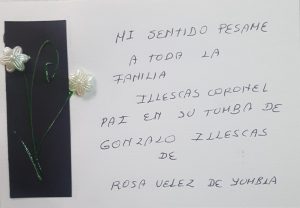 MI SENTIDO PESAME
A TODA LA
FAMILIA
ILLESCAS CORONEL
PAI EN SU TUMBA DE
GONZALO ILLESCAS
DE
ROSA VELEZ DE YUMBLA